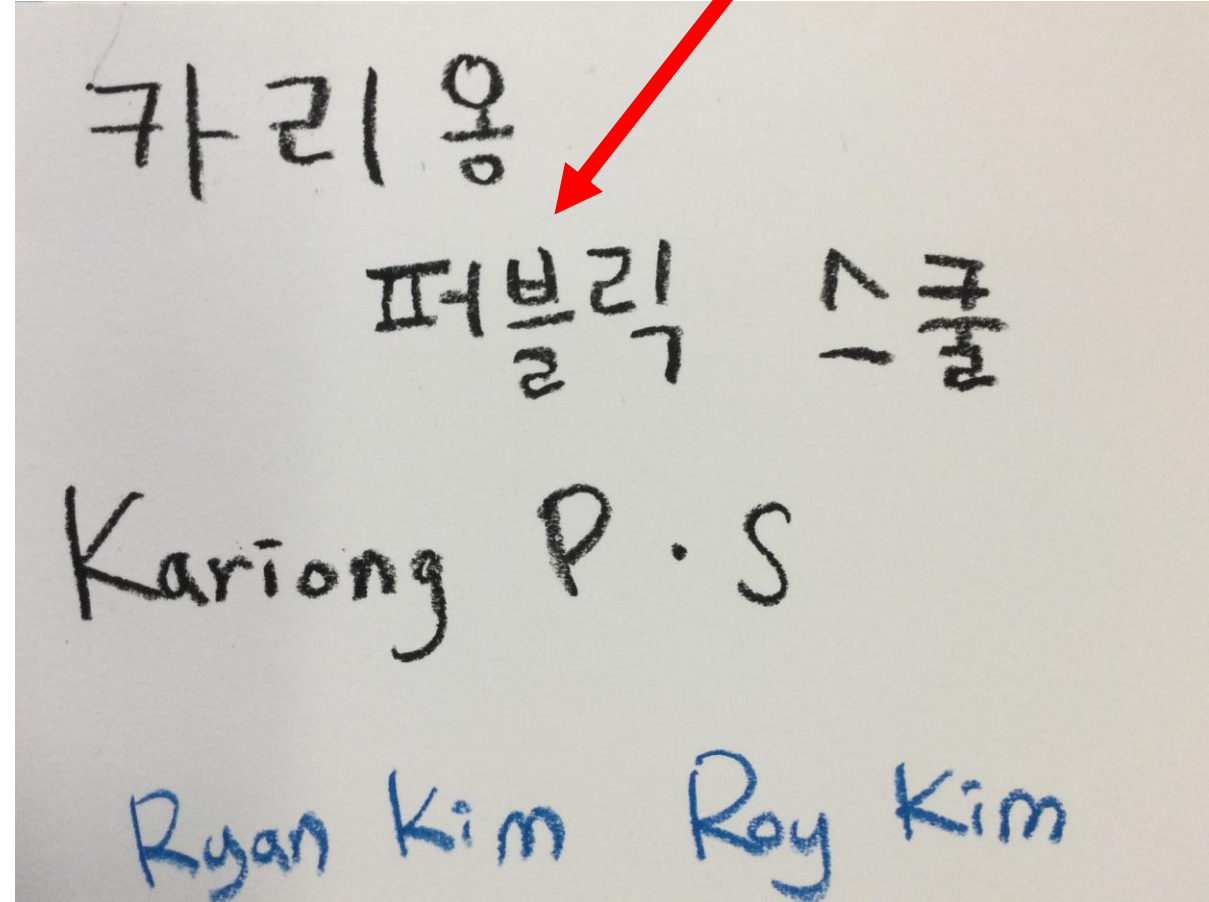 카리옹
퍼블릭 스쿨
Kariong P.S
Ryan Kim Roy Kim